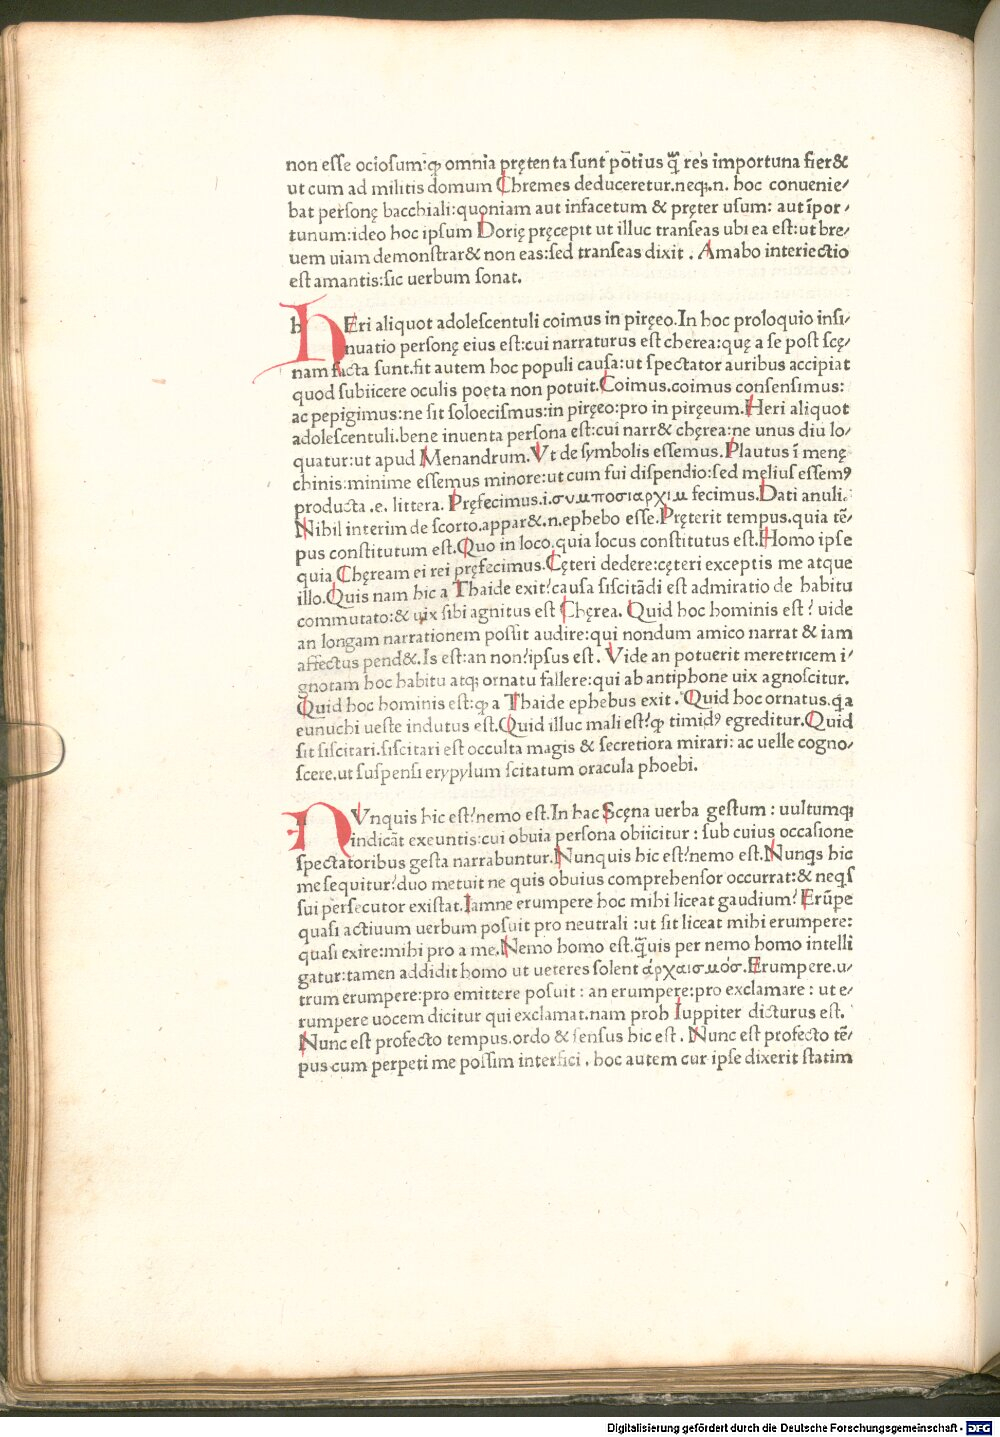 non esse ociosum:ꝙ omnia pręten ta sunt põtius q̃ʒ res importuna fier&
ut cum ad militis domum Chremes deduceretur.neqꝫ.n. hoc conuenie⸗
bat personę bacchiali:quoniam aut infacetum & pręter usum: aut ĩpor⸗
tunum:ideo hoc ipsum Dorię pręcepit ut illuc transeas ubi ea est:ut bre⸗
uem uiam demonstrar& non eas:sed transeas dixit . Amabo interiectio
est amantis:sic uerbum sonat.
hEri aliquot adolescentuli coimus in piręeo.In hoc proloquio insi⸗
nuatio personę eius est:cui narraturus est cherea:quę a se post scę⸗
nam facta sunt.fit autem hoc populi causa:ut spectator auribus accipiat
quod subiicere oculis poeta non potuit.Coimus.coimus consensimus:
ac pepigimus:ne sit soloecismus:in piręeo:pro in piręeum.Heri aliquot
adolescentuli.bene inuenta persona est:cui narr& chęrea:ne unus diu lo⸗
quatur:ut apud Menandrum.Vt de symbolis essemus.Plautus ĩ menę
chinis:minime essemus minore:ut cum fui dispendio:sed melius essemꝰ
producta .e. littera. Pręfecimus.i.συμποσιαρχιμ fecimus.Dati anuli.
Nibil interim de scorto.appar&.n.ephebo esse.Pręterit tempus.quia tẽ⸗
pus constitutum est.Quo in loco.quia locus constitutus est.Homo ipse
quia Chęream ei rei pręfecimus.Cęteri dedere:cęteri exceptis me atque
illo.Quis nam hic a Thaide exit?causa siscitãdi est admiratio de habitu
commutato:& uix sibi agnitus est Chęrea. Quid hoc hominis est? uide
an longam narrationem possit audire:qui nondum amico narrat & iam
affectus pend&.Is est:an non?ipsus est. Vide an potuerit meretricem i⸗
gnotam hoc habitu atqꝫ ornatu fallere:qui ab antiphone uix agnoscitur.
Quid hoc hominis est:ꝙ a Thaide ephebus exit . Quid hoc ornatus.q̃a
eunuchi ueste indutus est.Quid illuc mali est?ꝙ timidꝰ egreditur.Quid
sit siscitari.siscitari est occulta magis & secretiora mirari: ac uelle cogno⸗
scere.ut suspensi erypylum scitatum oracula phoebi.
nVnquis hic est?nemo est.In hac Scęna uerba gestum : uultumqꝫ
indicãt exeuntis:cui obuia persona obiicitur : sub cuius occasione
spectatoribus gesta narrabuntur.Nunquis hic est?nemo est.Nunq̃s hic
me sequitur?duo metuit ne quis obuius comprehensor occurrat:& neq̃s
sui persecutor existat.Iamne erumpere hoc mihi liceat gaudium? Erũpe
quasi actiuum uerbum posuit pro neutrali :ut sit liceat mihi erumpere:
quasi exire:mihi pro a me.Nemo homo est.q̃uis per nemo homo intelli
gatur:tamen addidit homo ut ueteres solent ἀρχαισμόσ.Erumpere.u⸗
trum erumpere:pro emittere posuit : an erumpere:pro exclamare : ut e⸗
rumpere uocem dicitur qui exclamat.nam proh Iuppiter dicturus est.
Nunc est profecto tempus.ordo & sensus hic est . Nunc est profecto tẽ⸗
pus cum perpeti me possim interfici . hoc autem cur ipse dixerit statim
Digitalisierung gefördert durch die Deutsche Forschungsgemeinschaft - DFG